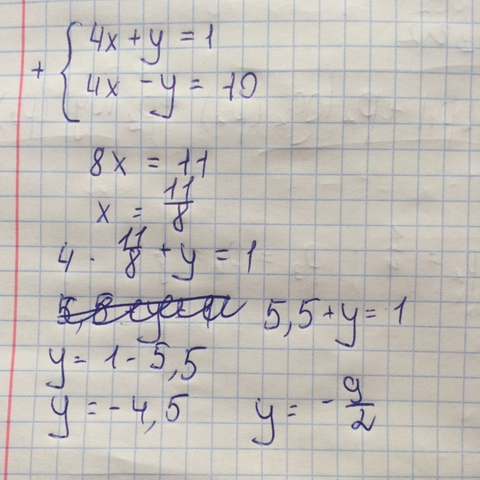 + { 4x + y = 1
4x - y = 10
8x = 11
x = 11/8
4 · 11/8 + y = 1
5,5 + y = 1
y = 1 - 5,5
y = -4,5 y = -9/2